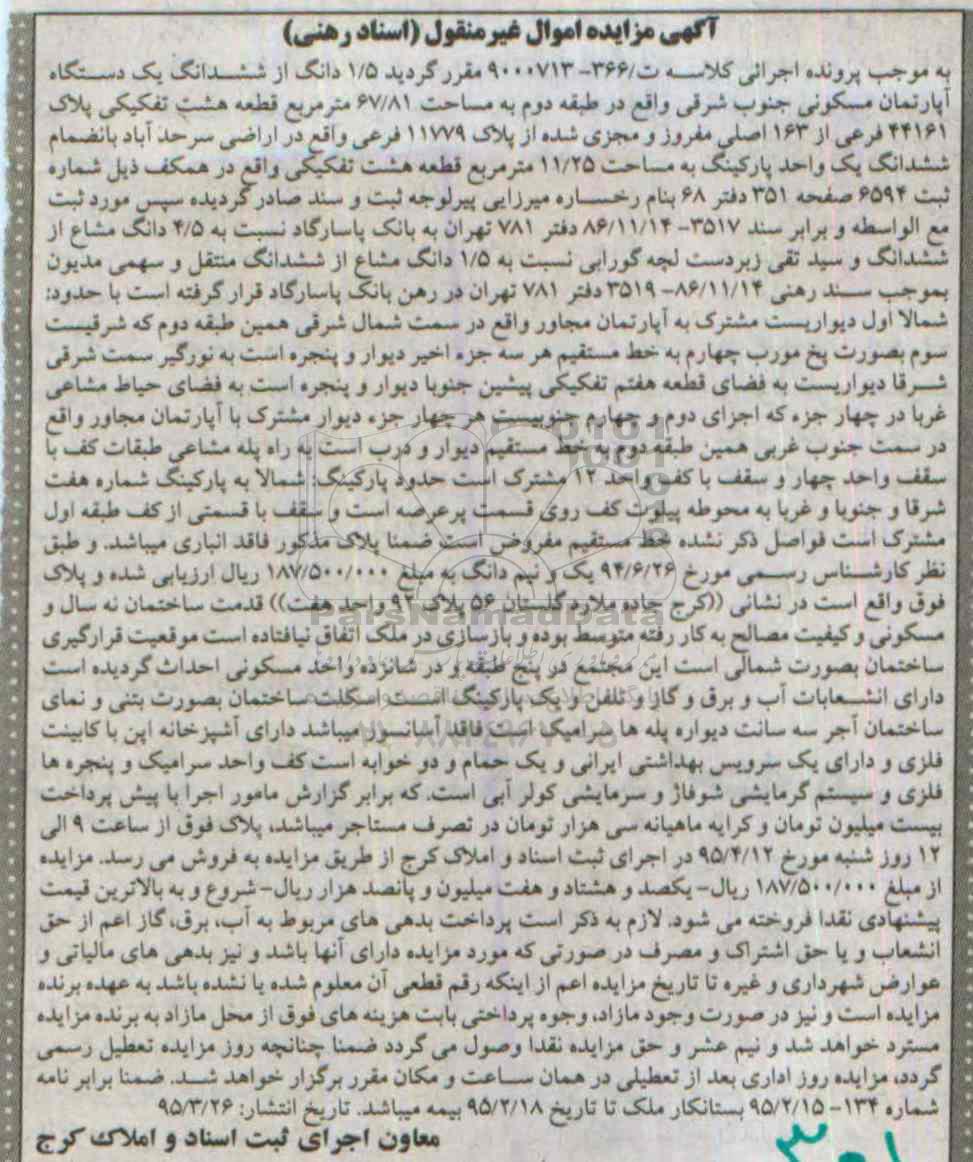 آگهی مزایده اموال غیرمنقول (اسناد رهنی)
به موجب پرونده اجرائی کلاسه ت/۳۶۶- ۹۰۰۰۷۱۳ مقرر گردید ۱/۵ دانگ از ششدانگ یک دستگاه
آپارتمان مسکونی جنوب شرقی واقع در طبقه دوم به مساحت ۶۷/۸۱ مترمربع قطعه هشت تفکیکی پلاک
۴۴۱۶۱ فرعی از ۱۶۳ اصلی مفروز و مجزی شده از پلاک ۱۱۷۷۹ فرعی واقع در اراضی سرحدآباد بانضمام
ششدانگ یک واحد پارکینگ به مساحت ۱۱/۲۵ مترمربع قطعه هشت تفکیکی واقع در همکف ذیل شماره
ثبت ۶۵۹۴ صفحه ۳۵۱ دفتر ۶۸ بنام رخساره میرزایی پیرلوجه ثبت و سند صادر گردیده سپس مورد ثبت
مع الواسطه و برابر سند ۳۵۱۷- ۸۶/۱۱/۱۴ دفتر ۷۸۱ تهران به بانک پاسارگاد نسبت به ۴/۵ دانگ مشاع از
ششدانگ و سید تقی زبردست لچه گورابی نسبت به ۱/۵ دانگ مشاع از ششدانگ منتقل و سهمی مدیون
بموجب سند رهنی ۸۶/۱۱/۱۴- ۳۵۱۹ دفتر ۷۸۱ تهران در رهن بانک پاسارگاد قرار گرفته است با حدود:
شمالا اول دیواریست مشترک به آپارتمان مجاور واقع در سمت شمال شرقی همین طبقه دوم که شرقیست
سوم بصورت پخ مورب چهارم به خط مستقیم هر سه جزء اخیر دیوار و پنجره است به نورگیر سمت شرقی
شرقا دیواریست به فضای قطعه هفتم تفکیکی پیشین جنوبا دیوار و پنجره است به فضای حیاط مشاعی
غربا در چهار جزء که اجزای دوم و چهارم جنوبیست هر چهار جزء دیوار مشترک با آپارتمان مجاور واقع
در سمت جنوب غربی همین طبقه دوم به خط مستقیم دیوار و درب است به راه پله مشاعی طبقات کف با
سقف واحد چهار و سقف با کف واحد ۱۲ مشترک است حدود پارکینگ: شمالا به پارکینگ شماره هفت
شرقا و جنوبا و غربا به محوطه پیلوت کف روی قسمت پرعرصه است و سقف با قسمتی از کف طبقه اول
مشترک است فواصل ذکر نشده خط مستقیم مفروض است ضمنا پلاک مذکور فاقد انباری میباشد. و طبق
نظر کارشناس رسمی مورخ ۹۴/۶/۲۶ یک و نیم دانگ به مبلغ ۱۸۷/۵۰۰/۰۰۰ ریال ارزیابی شده و پلاک
فوق واقع است در نشانی ((کرج جاده ملارد گلستان ۵۶ پلاک ۹۲ واحد هفت)) قدمت ساختمان نه سال و
مسکونی و کیفیت مصالح به کار رفته متوسط بوده و بازسازی در ملک اتفاق نیافتاده است موقعیت قرارگیری
ساختمان بصورت شمالی است این مجتمع در پنج طبقه و در شانزده واحد مسکونی احداث گردیده است
دارای انشعابات آب و برق و گاز و تلفن و یک پارکینگ است اسکلت ساختمان بصورت بتنی و نمای
ساختمان آجر سه سانت دیواره پله ها سرامیک است فاقد آسانسور میباشد دارای آشپزخانه اپن با کابینت
فلزی و دارای یک سرویس بهداشتی ایرانی و یک حمام و دو خوابه است کف واحد سرامیک و پنجره ها
فلزی و سیستم گرمایشی شوفاژ و سرمایشی کولر آبی است. که برابر گزارش مامور اجرا با پیش پرداخت
بیست میلیون تومان و کرایه ماهیانه سی هزار تومان در تصرف مستاجر میباشد، پلاک فوق از ساعت ۹ الی
۱۲ روز شنبه مورخ ۹۵/۴/۱۲ در اجرای ثبت اسناد و املاک کرج از طریق مزایده به فروش می رسد. مزایده
از مبلغ ۱۸۷/۵۰۰/۰۰۰ ریال- یکصد و هشتاد و هفت میلیون و پانصد هزار ریال- شروع و به بالاترین قیمت
پیشنهادی نقدا فروخته می شود. لازم به ذکر است پرداخت بدهی های مربوط به آب، برق، گاز اعم از حق
انشعاب و یا حق اشتراک و مصرف در صورتی که مورد مزایده دارای آنها باشد و نیز بدهی های مالیاتی و
عوارض شهرداری و غیره تا تاریخ مزایده اعم از اینکه رقم قطعی آن معلوم شده یا نشده باشد به عهده برنده
مزایده است و نیز در صورت وجود مازاد، وجوه پرداختی بابت هزینه های فوق از محل مازاد به برنده مزایده
مسترد خواهد شد و نیم عشر و حق مزایده نقدا وصول می گردد ضمنا چنانچه روز مزایده تعطیل رسمی
گردد، مزایده روز اداری بعد از تعطیلی در همان ساعت و مکان مقرر برگزار خواهد شد. ضمنا برابر نامه
شماره ۱۳۴- ۹۵/۲/۱۵ بستانکار ملک تا تاریخ ۹۵/۲/۱۸ بیمه میباشد. تاریخ انتشار: ۹۵/۳/۲۶
معاون اجرای ثبت اسناد و املاک کرج
ParsNamadData